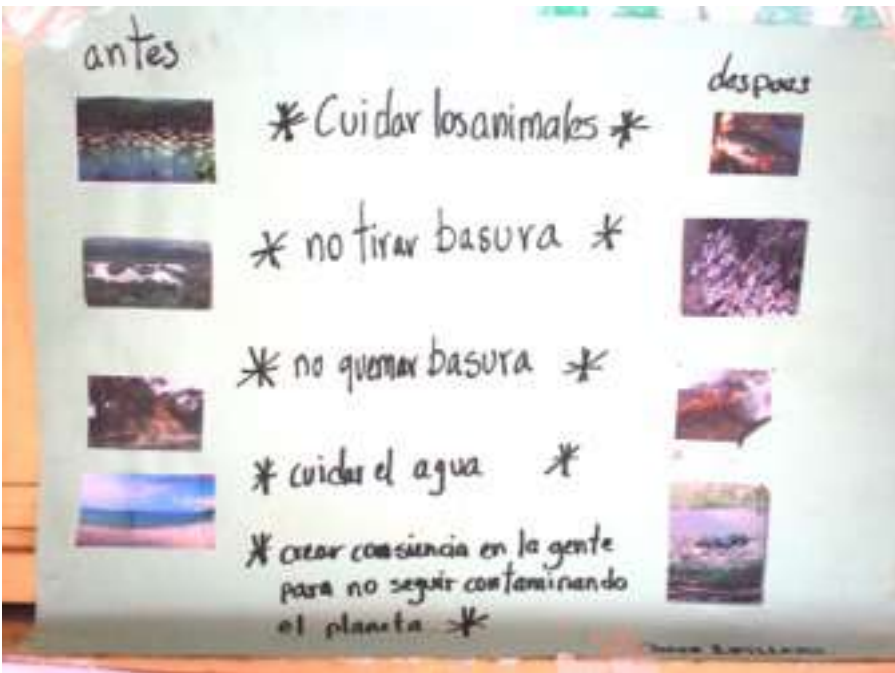 antes
despues
* Cuidar los animales *
* no tirar basura *
* no quemar basura *
* cuidar el agua *
* crear consiencia en la gente
para no seguir contaminando
el planeta *